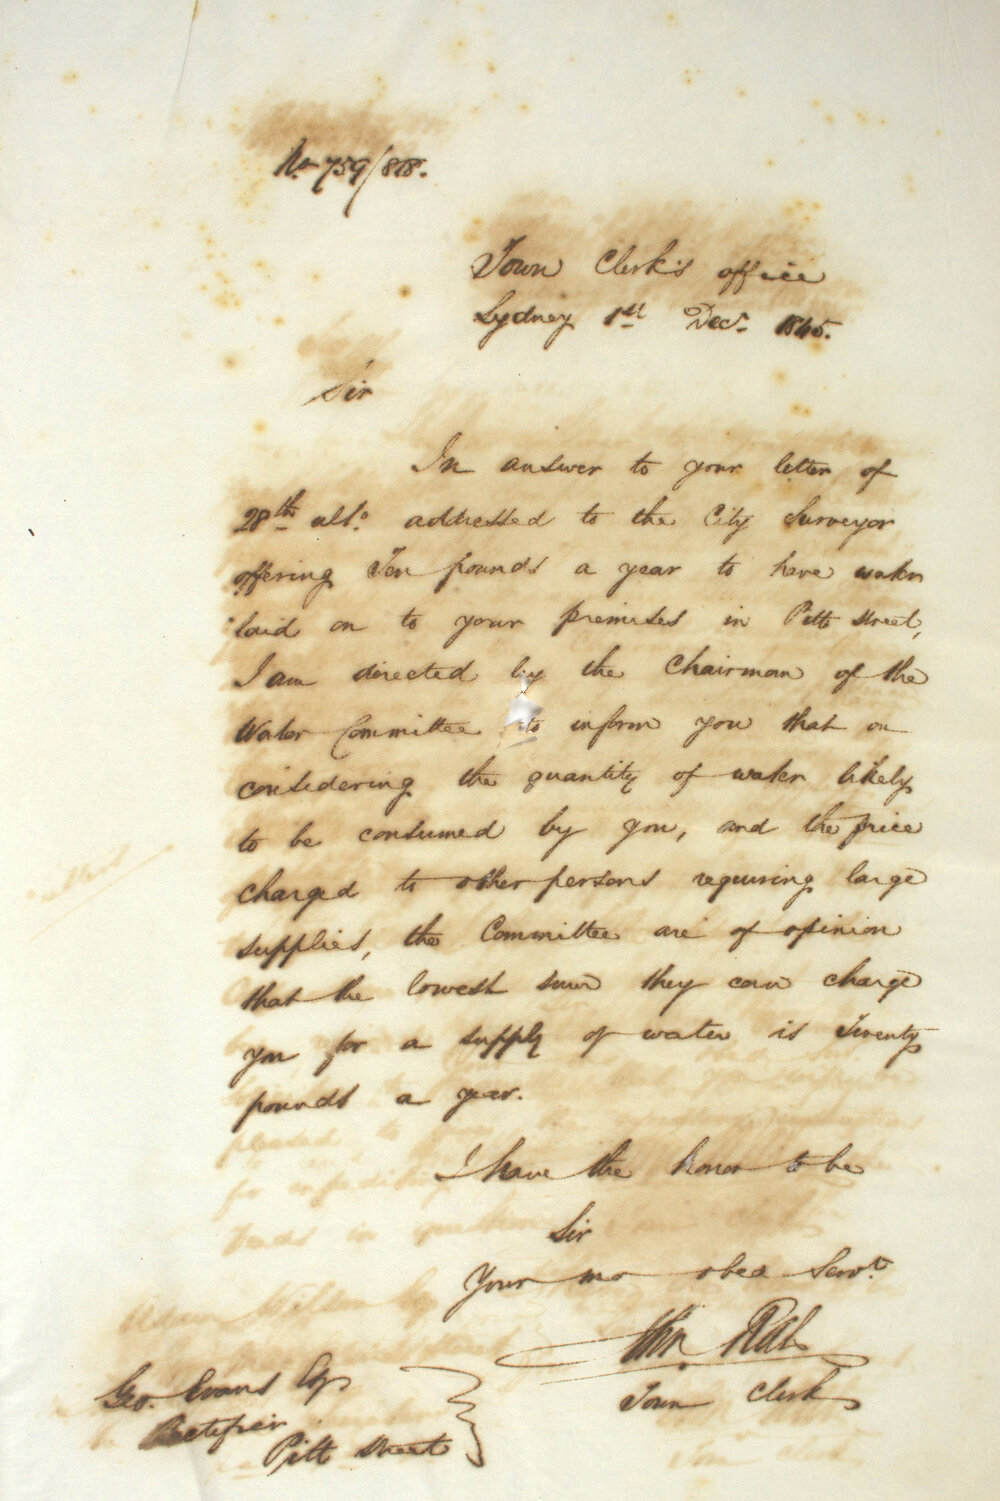 No. 759/878.
Town Clerk's office
Sydney 1st Decr. 1845.
Sir
In answer to your letter of
28th ulto. addressed to the City Surveyor
offering Ten pounds a year to have water
laid on to your premises in Pitt Street,
I am directed by the Chairman of the
Water Committee to inform you that on
considering the quantity of water likely
to be consumed by you, and the price
charged to other persons requiring large
supplies, the Committee are of opinion
that the lowest sum they can charge
you for a supply of water is Twenty
pounds a year.
I have the honor to be
Sir
Your mo obed Servt.
Town Clerk
Geo. Evans Esq
Rectifier
Pitt Street